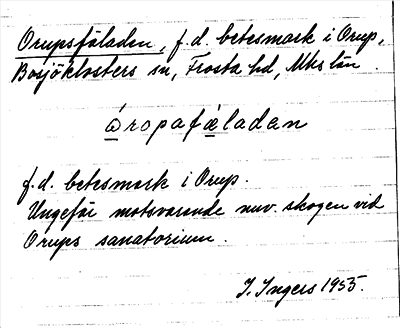 Orupsfäladen, f.d. betesmark i Orup,
Bosjöklosters sn, Frosta hd, Mhs län.
óropafæladen
f.d. betesmark i Orup.
Ungefär motsvarande nuv. skogen vid
Orups sanatorium.
I. Ingers 1955.